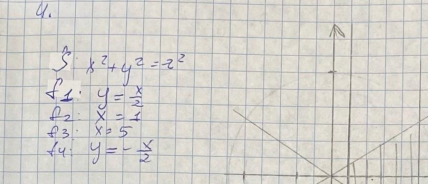 4.
S: x² + y² = z²
f1: y = x/2
f2: x = 1
f3: x = 5
f4: y = - x/2